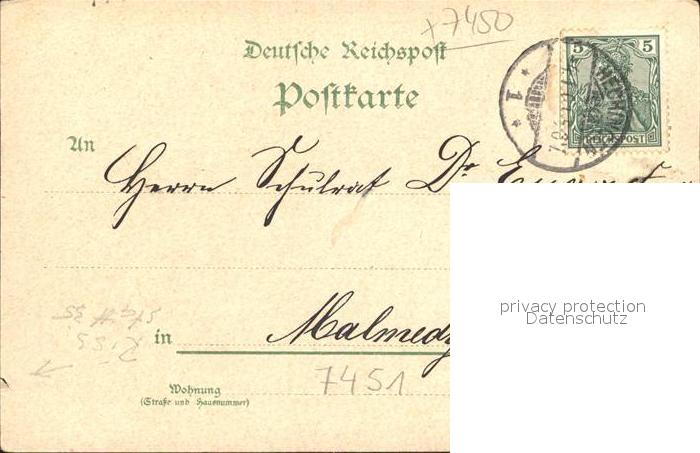 x 7450
Deutsche Reichspost
Postkarte
5 5
REICHSPOST
1
An
Herrn Schulrat Dr
privacy protection
Datenschutz
in Malmedy
7451
Wohnung
(Straße und Hausnummer)